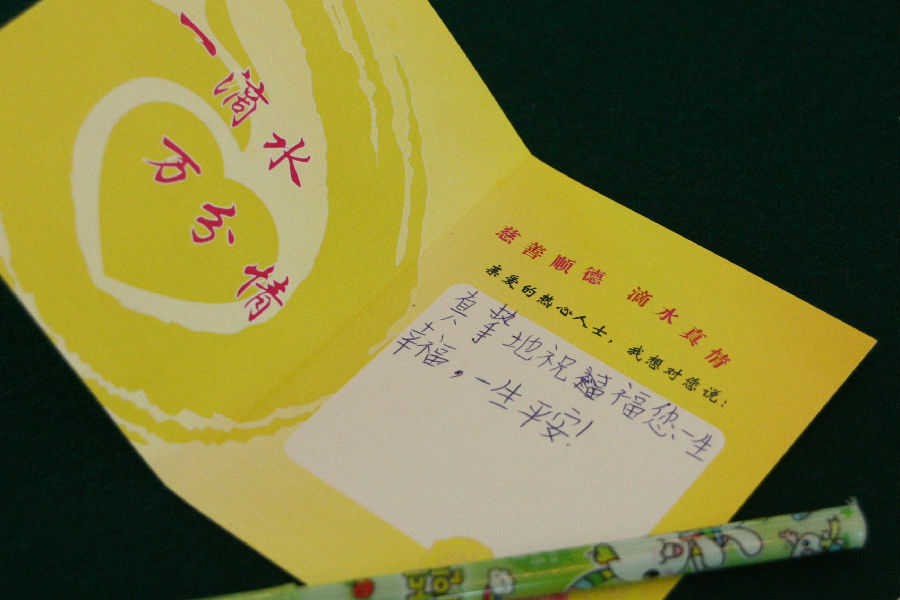 一滴水
万分情
慈善顺德 滴水真情
亲爱的热心人士，我想对您说：
真挚地祝福您一生
幸福，一生平安！